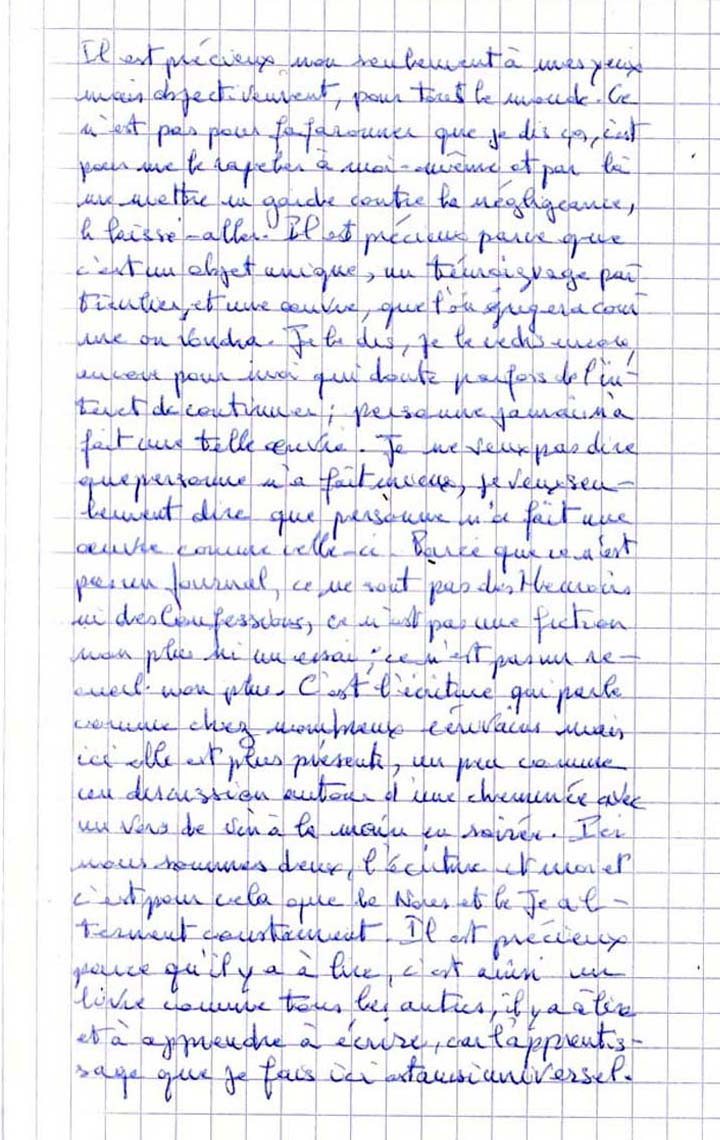 Il est précieux non seulement à mes yeux
mais objectivement, pour tout le monde. Ce
n'est pas pour fafaronner que je dis ça, c'est
pour me le rapeler à moi-même et par là
me mettre en garde contre la négligeance,
le laissé-aller. Il est précieux parce que
c'est un objet unique, un témoignage par
ticulier, et une œuvre, que l'on jugera com
me on voudra. Je le dis, je le redis encore,
encore pour moi qui doute parfois de l'in-
teret de continuer ; personne jamais n'a
fait une telle œuvre. Je ne veux pas dire
que personne n'a fait mieux, je veux seu-
lement dire que personne n'a fait une
œuvre comme celle-ci. Parce que ce n'est
pas un Journal, ce ne sont pas des Memoires
ni des Confessions, ce n'est pas une fiction
non plus ni un essai ; ce n'est pas un re-
cueil non plus. C'est l'écriture qui parle
comme chez nombreux écrivains mais
ici elle est plus présente, un peu comme
en discussion autour d'une cheminée avec
un vers de vin à la main en soirée. Ici
nous sommes deux, l'écriture et moi et
c'est pour cela que le Nous et le Je al-
ternent constament. Il est précieux
parce qu'il y a à lire, c'est ainsi un
livre comme tous les autres, il y a à lire
et à apprendre à écrire, car l'apprentis-
sage que je fais ici est aussi universel.